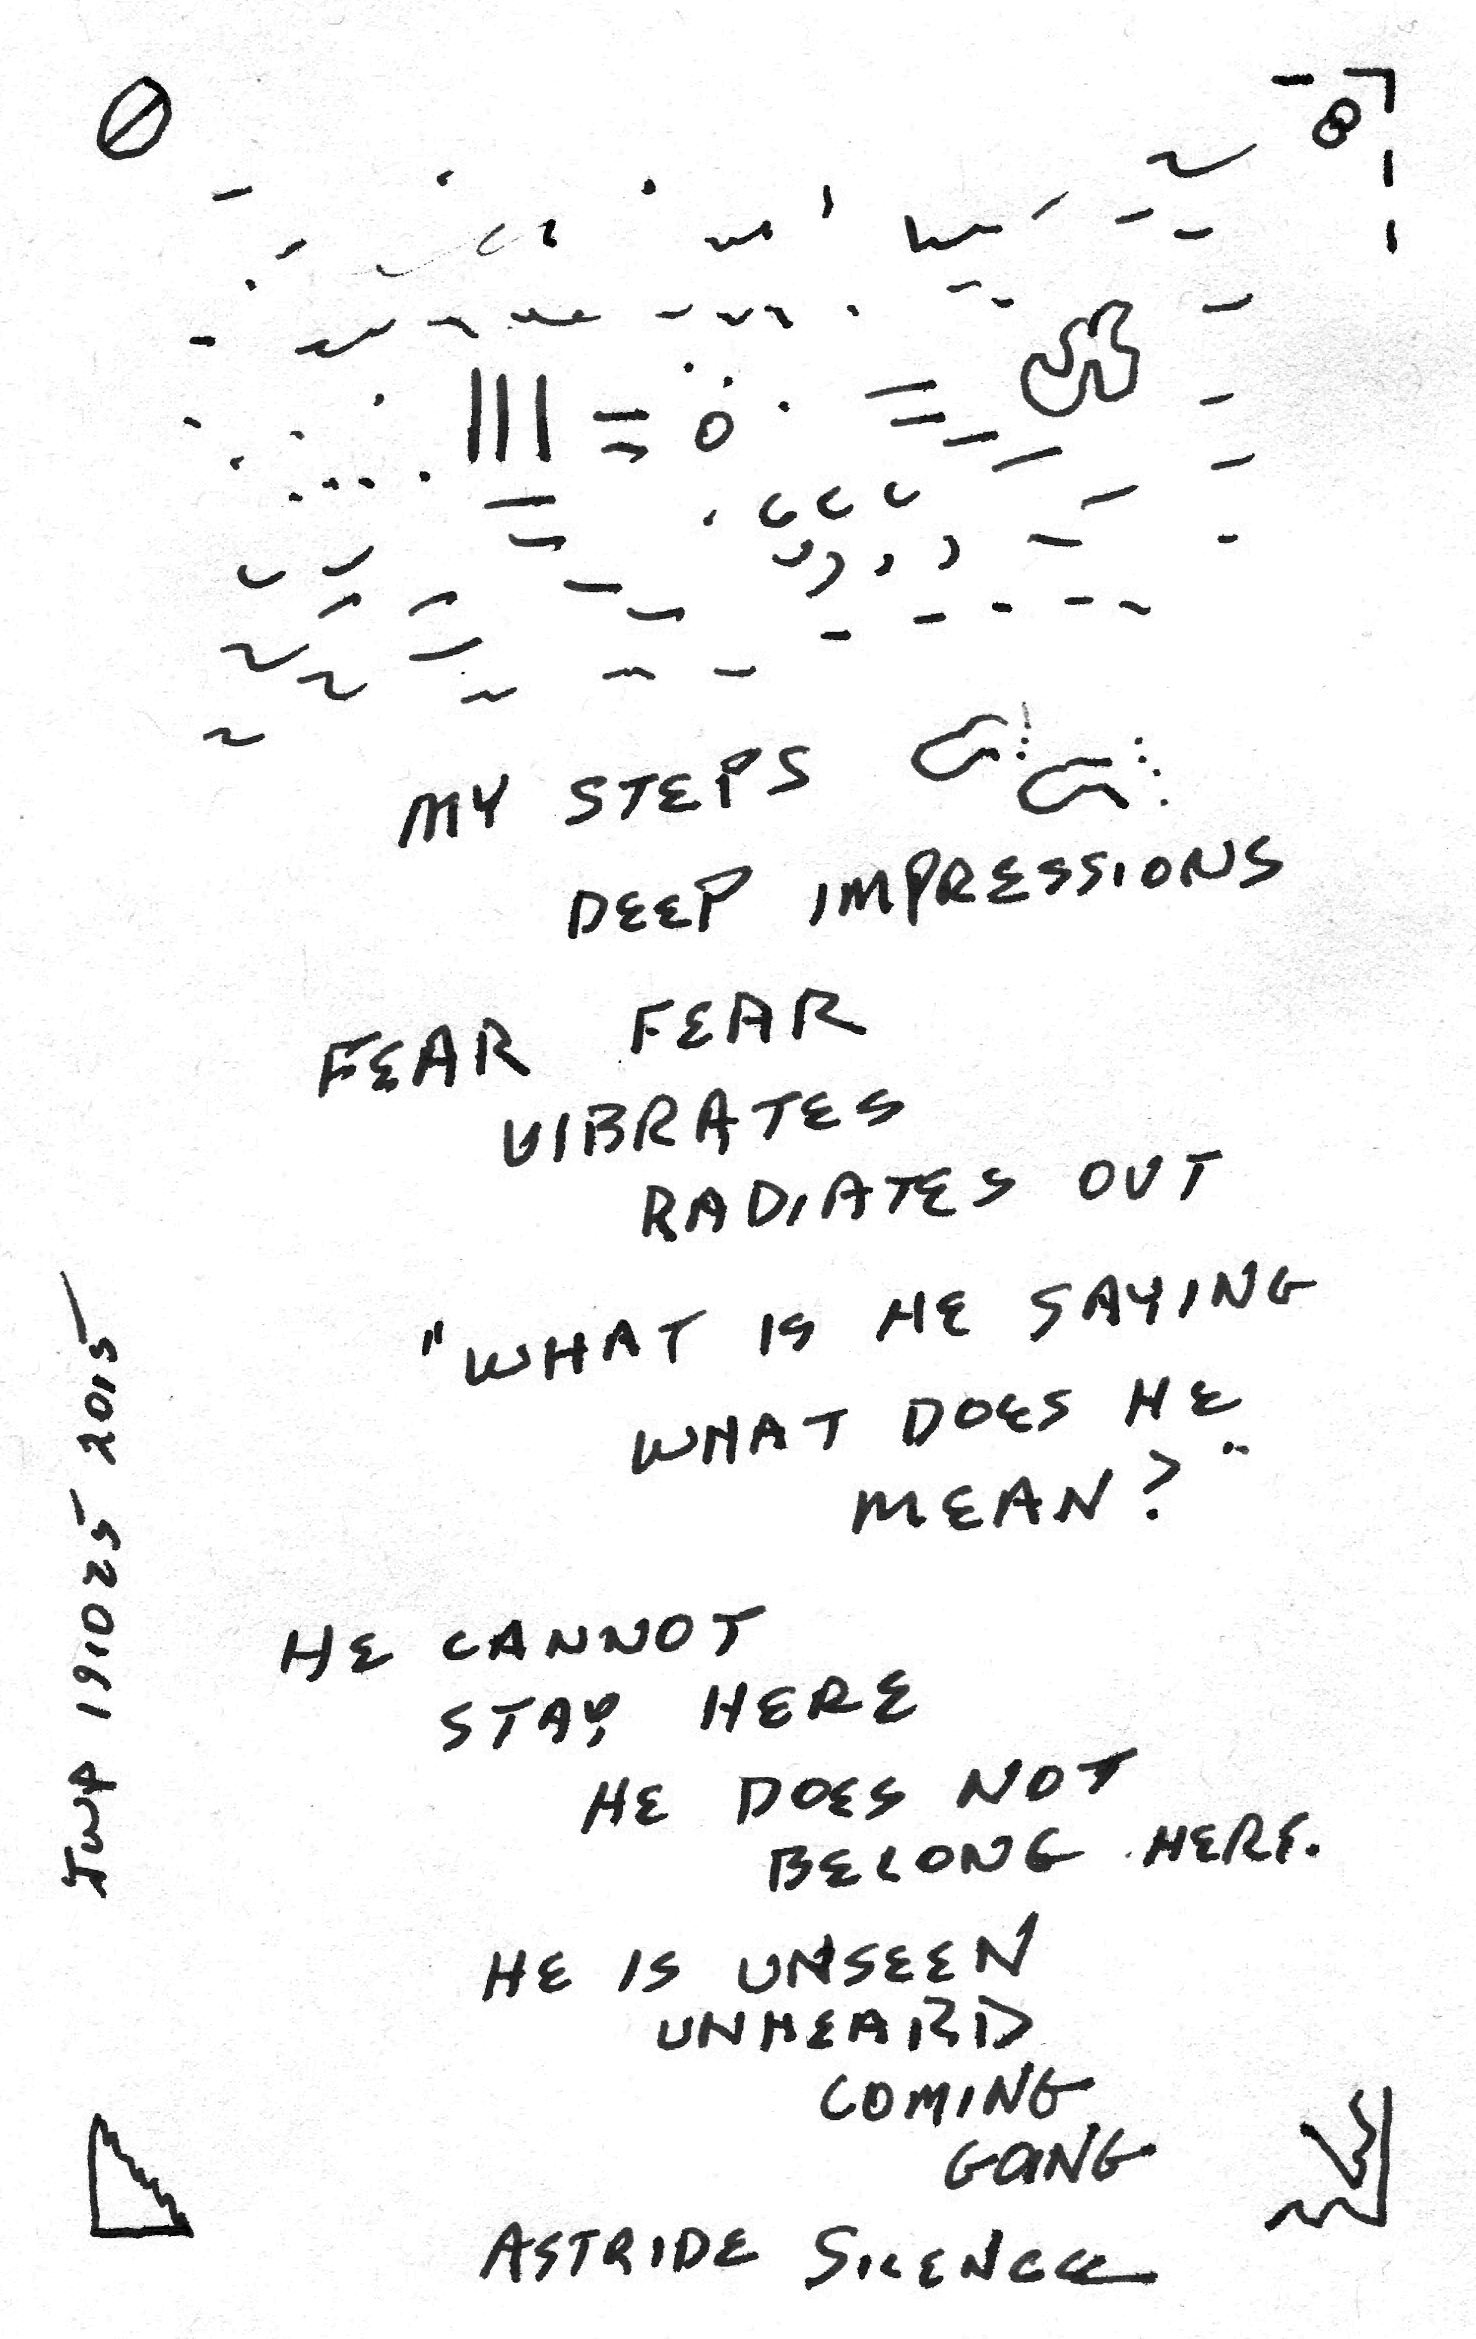 MY STEPS
DEEP IMPRESSIONS
FEAR FEAR
VIBRATES
RADIATES OUT
"WHAT IS HE SAYING
WHAT DOES HE
MEAN?"
HE CANNOT
STAY HERE
HE DOES NOT
BELONG HERE.
HE IS UNSEEN
UNHEARD
COMING
GOING
ASTRIDE SILENCE
191025 2015